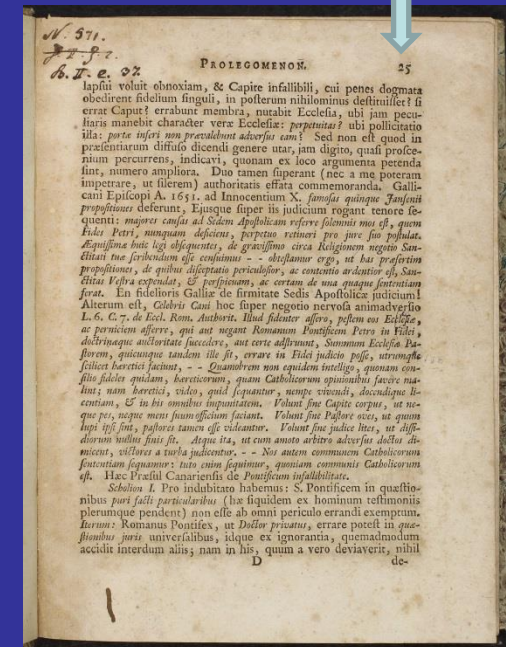 N. 571.
J. II. g. 7.
B. II. e. 37
PROLEGOMENON. 25
lapſui voluit obnoxiam, & Capite infallibili, cui penes dogmata
obedirent fidelium ſinguli, in poſterum nihilominus deſtituiſſet? ſi
errat Caput? errabunt membra, nutabit Eccleſia, ubi jam pecu-
liaris manebit character veræ Eccleſiæ: perpetuitas? ubi pollicitatio
illa: portæ inferi non prævalebunt adverſus eam? Sed non eſt quod in
præſentiarum diffuſo dicendi genere utar, jam digito, quaſi proſce-
nium percurrens, indicavi, quonam ex loco argumenta petenda
ſint, numero ampliora. Duo tamen ſuperant (nec a me poteram
impetrare, ut ſilerem) authoritatis effata commemoranda. Galli-
cani Epiſcopi A. 1651. ad Innocentium X. famoſas quinque Janſenii
propoſitiones deferunt, Ejusque ſuper iis judicium rogant tenore ſe-
quenti: majores cauſas ad Sedem Apoſtolicam referre ſolemnis mos eſt, quem
Fides Petri, nunquam deficiens, perpetuo retineri pro jure ſuo poſtulat.
Æquiſſimæ huic legi obſequentes, de graviſſimo circa Religionem negotio San-
ctitati tuæ ſcribendum eſſe cenſuimus - - obteſtamur ergo, ut has præſertim
propoſitiones, de quibus diſceptatio periculoſior, ac contentio ardentior eſt, San-
ctitas Veſtra expendat, & perſpicuam, ac certam de una quaque ſententiam
ferat. En fidelioris Galliæ de firmitate Sedis Apoſtolicæ judicium!
Alterum eſt, Celebris Cani hoc ſuper negotio nervoſa animadverſio
L. 6. C. 7. de Eccl. Rom. Authorit. Illud fidenter aſſero, peſtem eos Eccleſiæ,
ac perniciem afferre, qui aut negant Romanum Pontificem Petro in Fidei,
doctrinæque auctoritate ſuccedere, aut certe adſtruunt, Summum Eccleſiæ Pa-
ſtorem, quicunque tandem ille ſit, errare in Fidei judicio poſſe, utrumque
ſcilicet hæretici faciunt, - - Quamobrem non equidem intelligo, quonam con-
ſilio fideles quidam, hæreticorum, quam Catholicorum opinionibus favere ma-
lint; nam hæretici, video, quid ſequantur, nempe vivendi, docendique li-
centiam, & in his omnibus impunitatem. Volunt ſine Capite corpus, ut ne-
que pes, neque mens ſuum officium faciant. Volunt ſine Paſtore oves, ut quum
lupi ipſi ſint, paſtores tamen eſſe videantur. Volunt ſine judice lites, ut diſſi-
diorum nullus finis ſit. Atque ita, ut cum amoto arbitro adverſus doctos di-
micent, victores a turba judicentur. - - Nos autem communem Catholicorum
ſententiam ſequamur: tuto enim ſequimur, quoniam communis Catholicorum
eſt. Hæc Præſul Canarienſis de Pontificum infallibilitate.
Scholion I. Pro indubitato habemus: S. Pontificem in quæſtio-
nibus puri facti particularibus (hæ ſiquidem ex hominum teſtimoniis
plerumque pendent) non eſſe ab omni periculo errandi exemptum.
Iterum: Romanus Pontifex, ut Doctor privatus, errare poteſt in quæ-
ſtionibus juris univerſalibus, idque ex ignorantia, quemadmodum
accidit interdum aliis; nam in his, quum a vero deviaverit, nihil
D de-